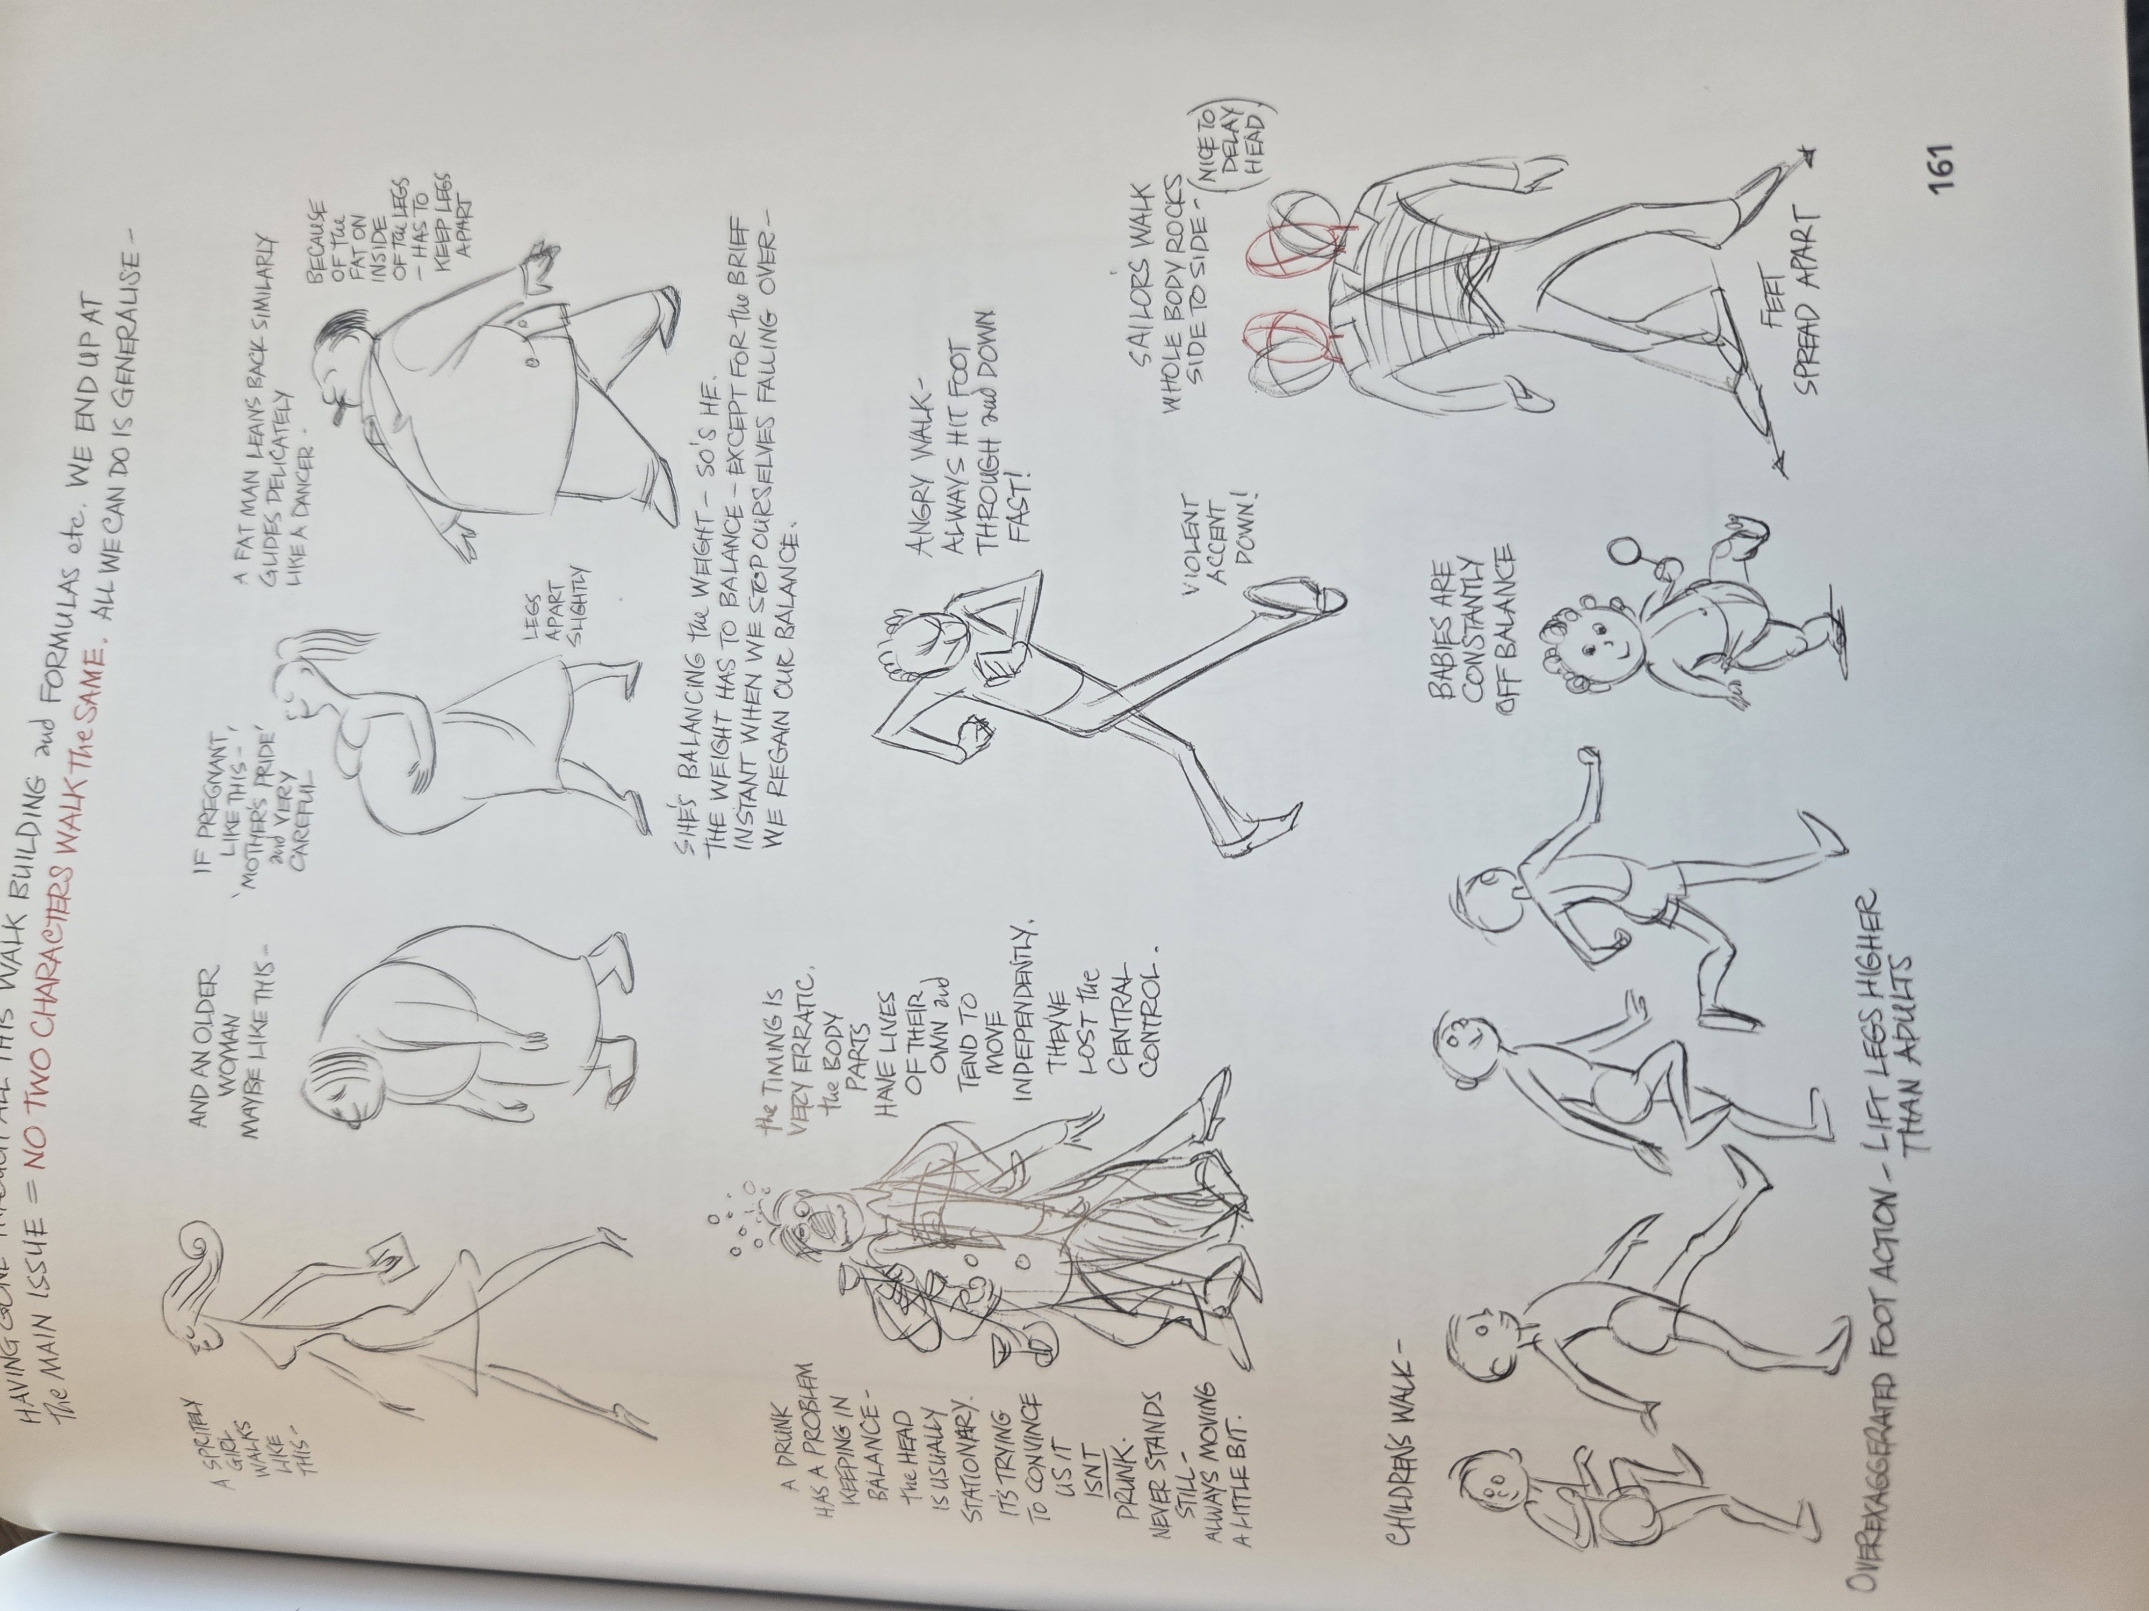 HAVING GONE THROUGH ALL THIS WALK BUILDING and FORMULAS etc. WE END UP AT
The MAIN ISSUE = NO TWO CHARACTERS WALK The SAME. ALL WE CAN DO IS GENERALISE –
A SPRITELY
GIRL
WALKS
LIKE
THIS –
AND AN OLDER
WOMAN
MAYBE LIKE THIS –
IF PREGNANT,
LIKE THIS –
'MOTHER'S PRIDE'
and VERY
CAREFUL
LEGS
APART
SLIGHTLY
A FAT MAN LEANS BACK SIMILARLY
GLIDES DELICATELY
LIKE A DANCER.
BECAUSE
OF the
FAT ON
INSIDE
OF the LEGS
– HAS TO
KEEP LEGS
APART
SHE'S BALANCING the WEIGHT – SO'S HE.
THE WEIGHT HAS TO BALANCE – EXCEPT FOR the BRIEF
INSTANT WHEN WE STOP OURSELVES FALLING OVER –
WE REGAIN OUR BALANCE.
A DRUNK
HAS A PROBLEM
KEEPING IN
BALANCE –
the HEAD
IS USUALLY
STATIONARY.
IT'S TRYING
TO CONVINCE
US IT
ISNT
DRUNK.
NEVER STANDS
STILL –
ALWAYS MOVING
A LITTLE BIT.
the TIMING IS
VERY ERRATIC.
the BODY
PARTS
HAVE LIVES
OF THEIR
OWN and
TEND TO
MOVE
INDEPENDENTLY.
THEY'VE
LOST the
CENTRAL
CONTROL.
ANGRY WALK –
ALWAYS HIT FOOT
THROUGH and DOWN
FAST!
VIOLENT
ACCENT
DOWN!
SAILORS WALK
WHOLE BODY ROCKS
SIDE TO SIDE –
(NICE TO
DELAY
HEAD.)
FEET
SPREAD APART
CHILDRENS WALK –
OVEREXAGGERATED FOOT ACTION – LIFT LEGS HIGHER
THAN ADULTS
BABIES ARE
CONSTANTLY
OFF BALANCE
161